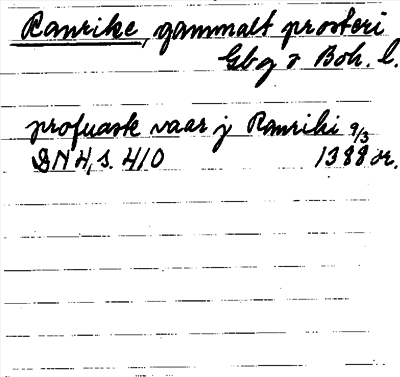 Ranrike, gammalt prosteri
Gbg o Boh. l.
profuask vaar j Ranriki 9/3
DN 4, s. 410 1388 or.